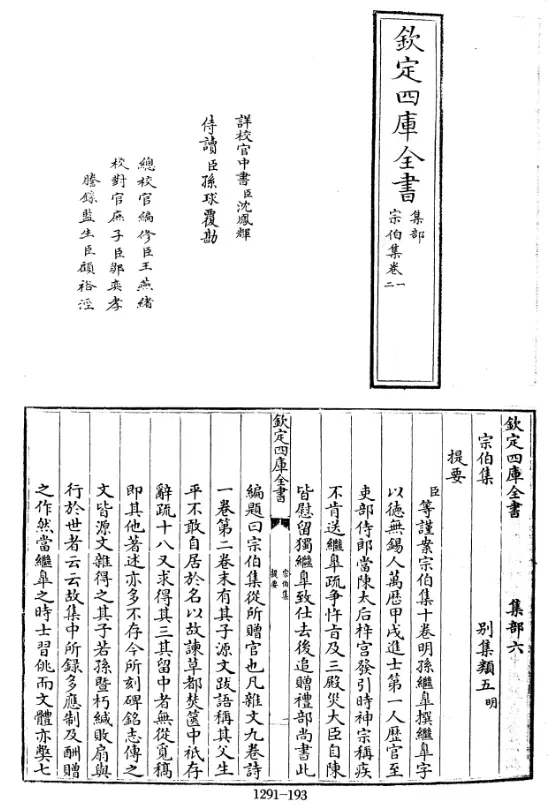 欽定四庫全書
集部
宗伯集卷一
二
詳校官中書臣沈鳳輝
侍讀臣孫球覆勘
總校官編修臣王燕緒
校對官庶子臣鄒奕孝
謄錄監生臣顧裕淫
欽定四庫全書　集部六
宗伯集　別集類五明
提要
臣等謹案宗伯集十卷明孫繼臯撰繼臯字
以徳無錫人萬厯甲戌進士第一人厯官至
吏部侍郎當陳太后梓宫發引時神宗稱疾
不肯送繼臯疏爭忤㫖及三殿災大臣自陳
皆慰留獨繼臯致仕去後追贈禮部尚書此
欽定四庫全書
宗伯集
提要
一
編題曰宗伯集從所贈官也凡雜文九卷詩
一卷第二卷末有其子源文跋語稱其父生
平不敢自居於名以故諫草都焚篋中祇存
辭疏十八又求得其三其留中者無從覓稿
即其他著述亦多不存今所刻碑銘志傳之
文皆源文雜得之其子若孫暨朽縑敗扇與
行於世者云云故集中所録多應制及酬贈
之作然當繼臯之時士習佻而文體亦弊七
1291-193